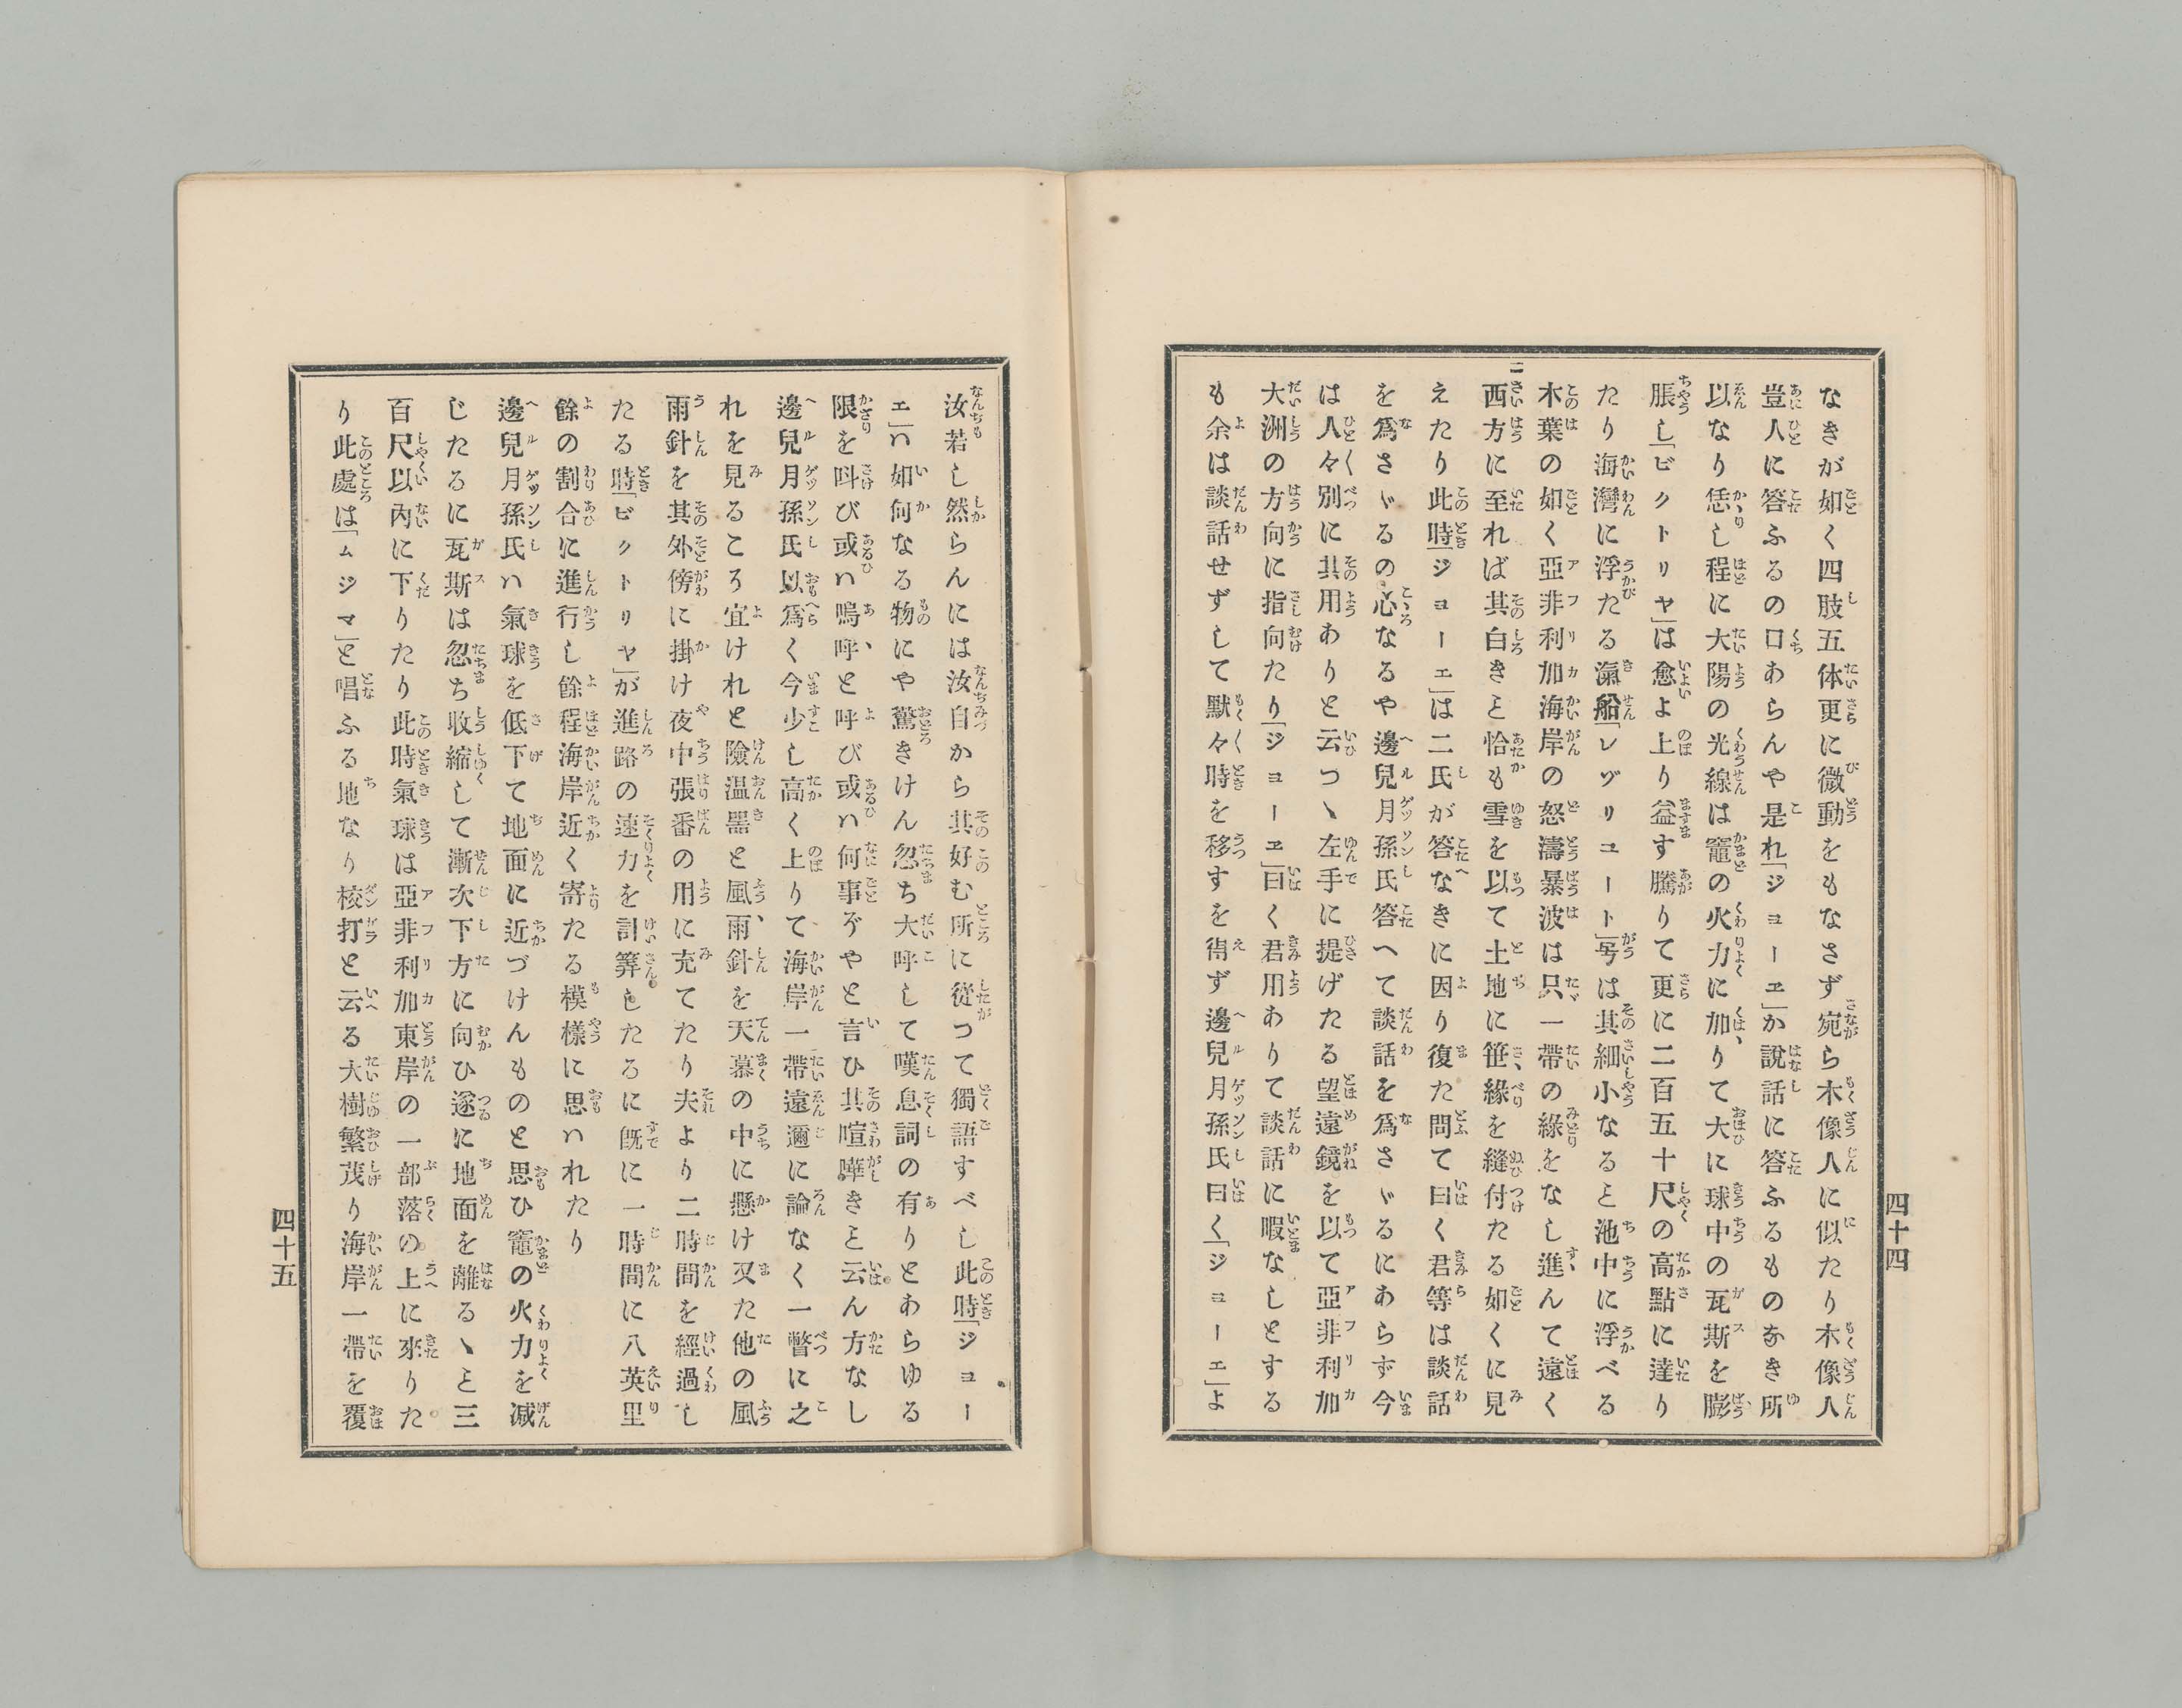 なきが如く四肢五体更に微動をもなさず宛ら木像人に似たり木像人
豈人に答ふるの口あらんや是れ「ジヨーヱ」か說話に答ふるものなき所
以なり恁し程に大陽の光線は竈の火力に加りて大に球中の瓦斯を膨
脹し「ビクトリヤ」は愈よ上り益す騰りて更に二百五十尺の高點に達り
たり海灣に浮たる滊船「レヅリユート」号は其細小なると池中に浮べる
木葉の如く亞非利加海岸の怒濤暴波は只一帶の綠をなし進んて遠く
西方に至れば其白きと恰も雪を以て土地に笹緣を縫付たる如くに見
えたり此時「ジヨーエ」は二氏が答なきに因り復た問て曰く君等は談話
を爲さゞるの心なるや邊兒月孫氏答へて談話を爲さゞるにあらず今
は人々別に其用ありと云つゝ左手に提げたる望遠鏡を以て亞非利加
大洲の方向に指向たり「ジヨーヱ」曰く君用ありて談話に暇なしとする
も余は談話せずして默々時を移すを得ず邊兒月孫氏曰く「ジヨーエ」よ
四十四
汝若し然らんには汝自から其好む所に從つて獨語すべし此時「ジヨー
エ」ハ如何なる物にや驚きけん忽ち大呼して嘆息詞の有りとあらゆる
限を呌び或ハ嗚呼と呼び或ハ何事ぞやと言ひ其喧嘩きと云ん方なし
邊兒月孫氏以爲く今少し高く上りて海岸一帶遠邇に論なく一瞥に之
れを見るころ宜けれと險温噐と風雨針を天幕の中に懸け又た他の風
雨針を其外傍に掛け夜中張番の用に充てたり夫より二時間を經過し
たる時「ビクトリヤ」が進路の速力を計筭したるに既に一時間に八英里
餘の割合に進行し餘程海岸近く寄たる模樣に思ハれたり
邊兒月孫氏ハ氣球を低下て地面に近づけんものと思ひ竈の火力を减
じたるに瓦斯は忽ち收縮して漸次下方に向ひ遂に地面を離るゝと三
百尺以內に下りたり此時氣球は亞非利加東岸の一部落の上に來りた
り此處は「ムジマ」と唱ふる地なり棱打と云る大樹繁茂り海岸一帶を覆
四十五